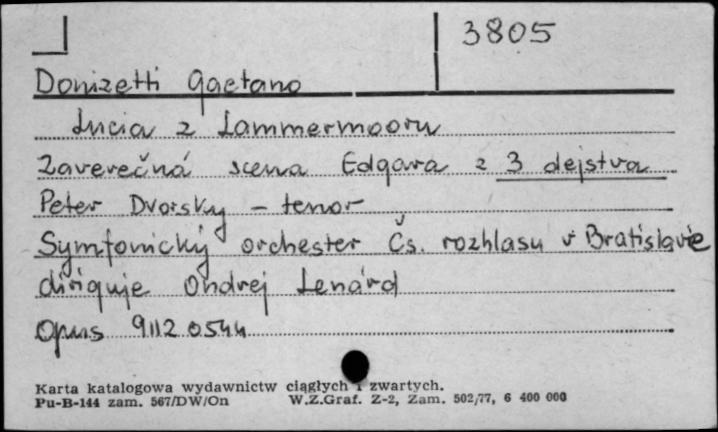 3805
Donizetti Gaetano
Lucia z Lammermooru
Zaverečná scena Edgara z 3 dejstva
Peter Dvorsky - tenor
Symfonický orchester Čs. rozhlasu v Bratislavie
diriguje Ondrej Lenárd
Opus 9112 0544
Karta katalogowa wydawnictw ciągłych i zwartych.
Pu-B-144 zam. 567/DW/On W.Z.Graf. Z-2, Zam. 502/77, 6 400 000